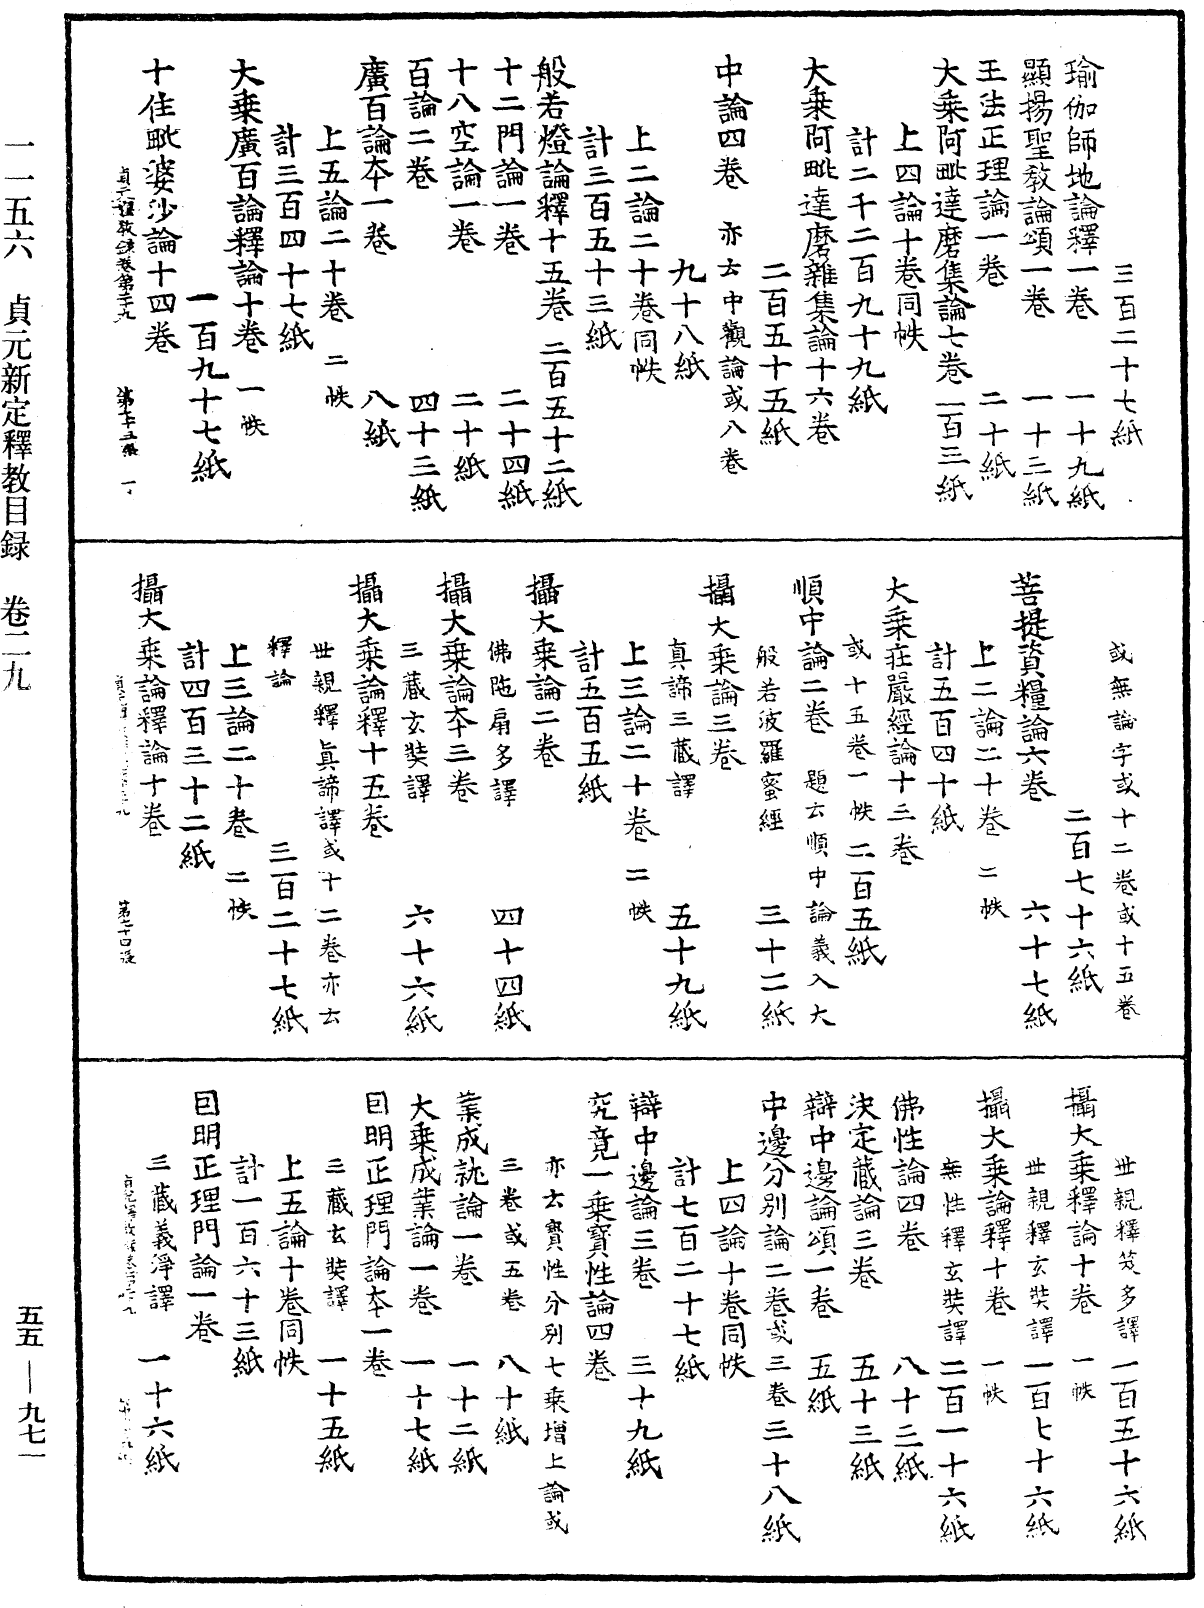 三百二十七紙
瑜伽師地論釋一卷 一十九紙
顯揚聖教論頌一卷 一十三紙
王法正理論一卷 二十紙
大乘阿毗達磨集論七卷 一百三紙
上四論十卷同帙
計二千二百九十九紙
大乘阿毗達磨雜集論十六卷
二百五十五紙
中論四卷 亦云中觀論或八卷
九十八紙
上二論二十卷同帙
計三百五十三紙
般若燈論釋十五卷 二百五十二紙
十二門論一卷 二十四紙
十八空論一卷 二十紙
百論二卷 四十三紙
廣百論本一卷 八紙
上五論二十卷 二帙
計三百四十七紙
大乘廣百論釋論十卷 一帙
一百九十七紙
十住毗婆沙論十四卷
或無論字或十二卷或十五卷
二百七十六紙
菩提資糧論六卷 六十七紙
上二論二十卷 二帙
計五百四十紙
大乘莊嚴經論十三卷
或十五卷一帙 二百五紙
順中論二卷 題云順中論義入大
般若波羅蜜經 三十二紙
攝大乘論三卷
真諦三藏譯 五十九紙
上三論二十卷 二帙
計五百五紙
攝大乘論二卷
佛陁扇多譯 四十四紙
攝大乘論本三卷
三藏玄奘譯 六十六紙
攝大乘論釋十五卷
世親釋真諦譯或十二卷亦云
釋論 三百二十七紙
上三論二十卷 二帙
計四百三十二紙
攝大乘論釋論十卷
世親釋笈多譯 一百五十六紙
攝大乘釋論十卷 一帙
世親釋玄奘譯 一百七十六紙
攝大乘論釋十卷 一帙
無性釋玄奘譯 二百一十六紙
佛性論四卷 八十三紙
決定藏論三卷 五十三紙
辯中邊論頌一卷 五紙
中邊分別論二卷或三卷 三十八紙
上四論十卷同帙
計七百二十七紙
辯中邊論三卷 三十九紙
究竟一乘寶性論四卷
亦云寶性分別七乘增上論或
三卷或五卷 八十紙
業成就論一卷 一十二紙
大乘成業論一卷 一十七紙
因明正理門論本一卷
三藏玄奘譯 一十五紙
上五論十卷同帙
計一百六十三紙
因明正理門論一卷
三藏義淨譯 一十六紙
一一五六 貞元新定釋教目録 卷二九
五五—九七一